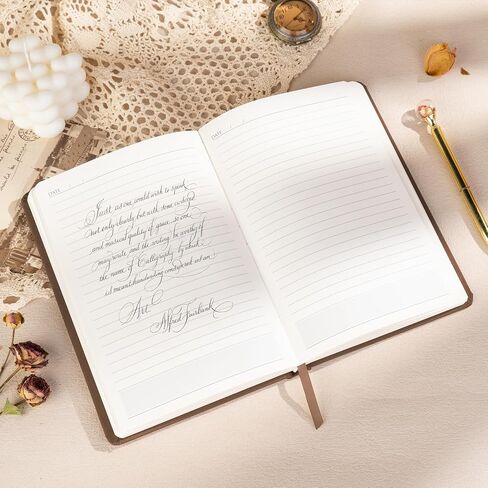 DATE / /
Just as one would wish to speak
not only clearly but with some
and musical quality of grace, so one
may write, and the writing be worthy of
the name of Calligraphy by which
is meant handwriting considered as an
Art.
Alfred Fairbank
DATE / /